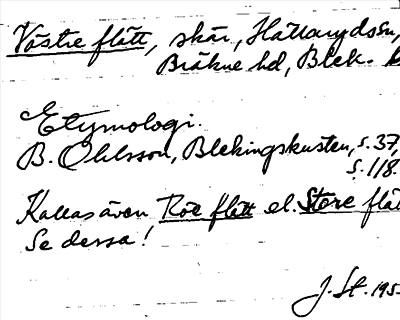 Västre flått, skär, Hällarydssn,
Bräkne hd, Blek.
Etymologi.
B. Ohlsson, Blekingskusten, s. 37,
s. 118.
Kallas även Röe flått el. Store flåt
Se dessa!
J. St. 195